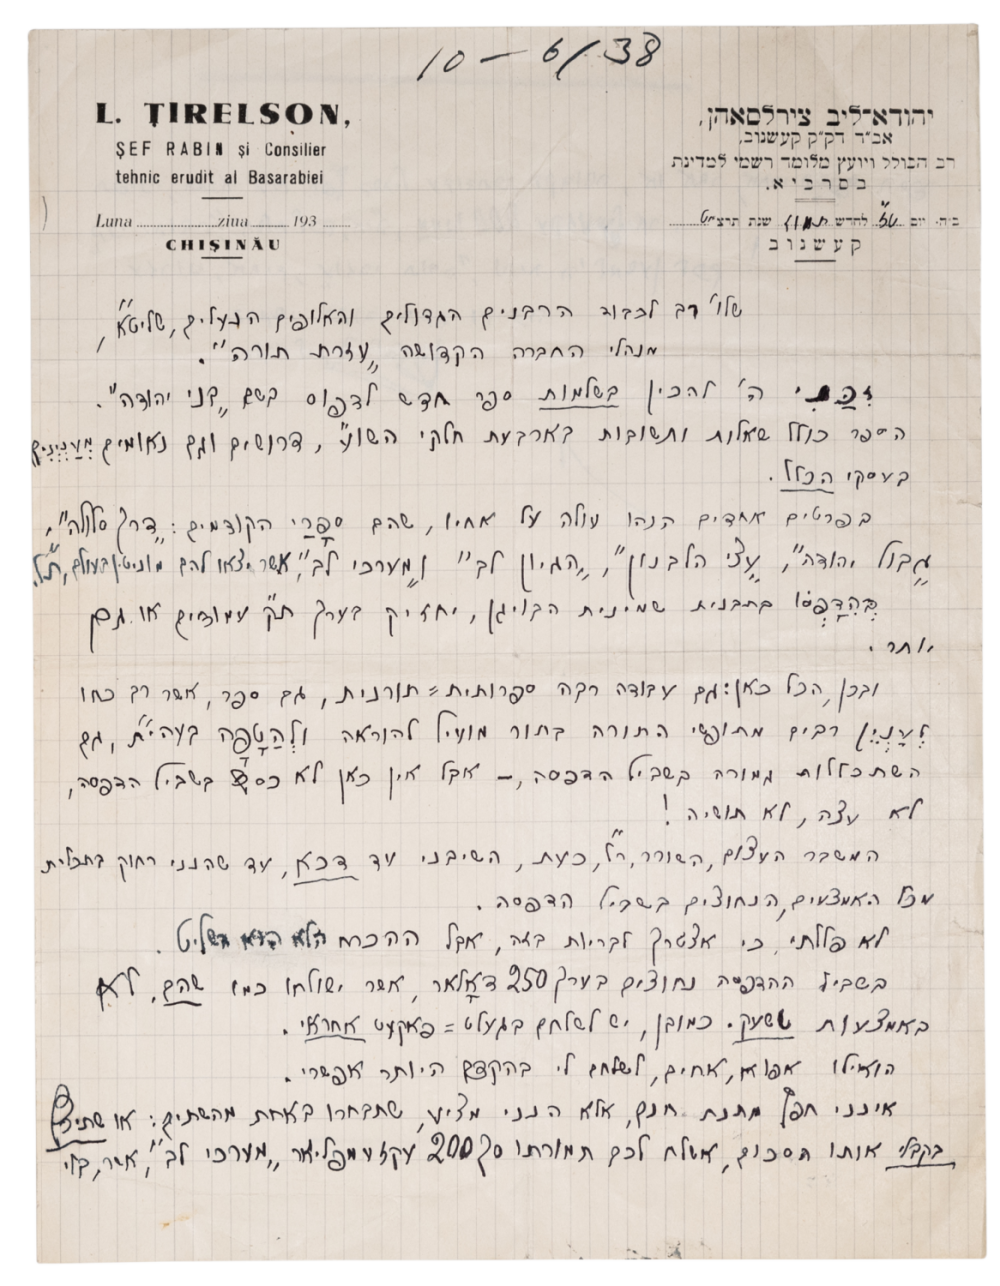 10 – 6/38
L. ȚIRELSON,
ȘEF RABIN și Consilier
tehnic erudit al Basarabiei
Luna ziua 193
CHIȘINĂU
יהודא־ליב צירלסאהן,
אב״ד דק״ק קעשנוב,
רב הכולל ויועץ מלומד רשמי למדינת
בסרביא.
ב״ה. יום לחדש תמוז שנת תרצ״ט
קעשנוב
שלו׳ רב לכבוד הרבנים הגדולים והאלופים הנעלים, שליטא״,
מנהלי החברה הקדושה „עזרת תורה״.
זִכַּנִי ה׳ להכין בשלמות ספר חדש לדפוס בשם „בני יהודה״.
הספר כולל שאלות ותשובות בארבעת חלקי השוע״, דרושים וגם נאומים מְעַנְיְנִים
בעסקי הכלל.
בפרטים אחדים הנהו עולה על אחיו, שהם סְפָרַי הקודמים: „דרך סלולה״,
„גבול יהודה״, „עצי הלבנון״, „הגיון לב״ ו„מערכי לב״, אשר יצאו להם מוניטין בעולם, ת״ל.
בְּהִדָּפְסוֹ בתבנית שמינית הבויגן, יחזיק בערך ת״ק עמודים או גם
יותר.
ובכן, הכל כאן: גם עבודה רבה ספרותית = תורנית, גם ספר, אשר רב כחו
לְעַנְיֵן רבים מתופשי התורה בתור מועיל להוראה וּלְהַטָּפָה בעהי״ת, גם
השתכללות גמורה בשביל הדפסה, – אבל אין כאן לא כסף בשביל הדפסה,
לא עצה, לא תושיה!
המשבר העצום, השורר, ר״ל, כעת, השיבני עד דכא, עד שהנני רחוק בתכלית
מכל האמצעים, הנחוצים בשביל הדפסה.
לא פללתי, כי אצטרך לבריות בזה, אבל ההכרח הלא הוא השליט.
בשביל ההדפסה נחוצים בערך 250 דאָלאַר, אשר ישולחו כמו שהם, לא
באמצעות טשעק. כמובן, יש לשלחם בגעלט = פאקעט אחראי.
הואילו אפוא, אחים, לשלחם לי בהקדם היותר אפשרי.
אינני חפץ מתנת חנם, אלא הנני מציע, שתבחרו באחת מהשתים: או שתיכף
בקבלי אותו הסכום, אשלח לכם תמורתו סך 200 עקזעמפליאר „מערכי לב״, אשר,